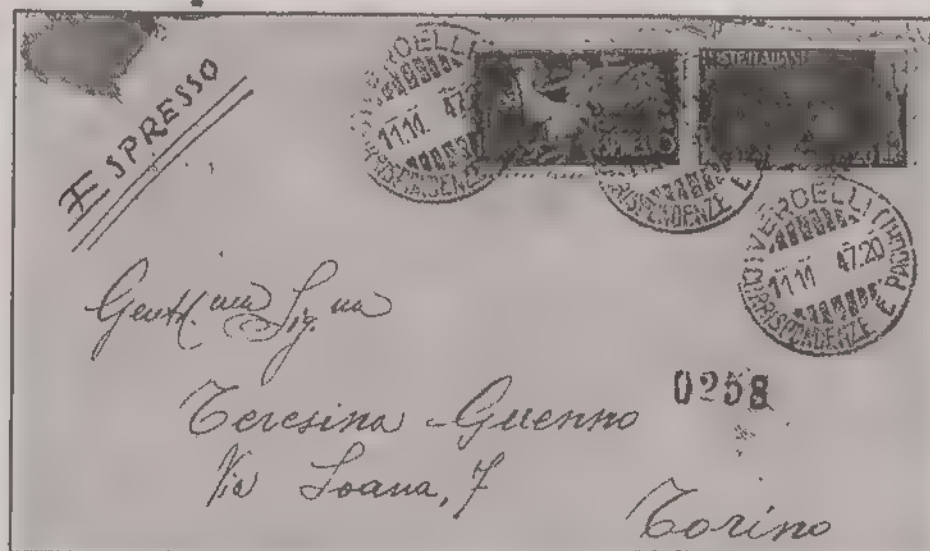 ESPRESSO
VERCELLI
11.11 47.
CORRISPONDENZE
CORRISPONDENZE E
VERCELLI
11.11 47.20
CORRISPONDENZE E PACCHI
Gent.ma Sig.na
0258
Teresina Guenno
Via Loana, 7
Torino